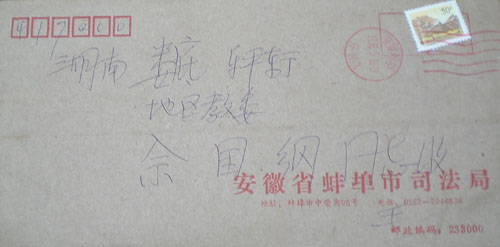 417000
湖南 娄底
地区教委
余 国 纲
安徽省蚌埠市司法局
地址：蚌埠市中荣街95号 电话：0552-2046836
邮政编码：233000